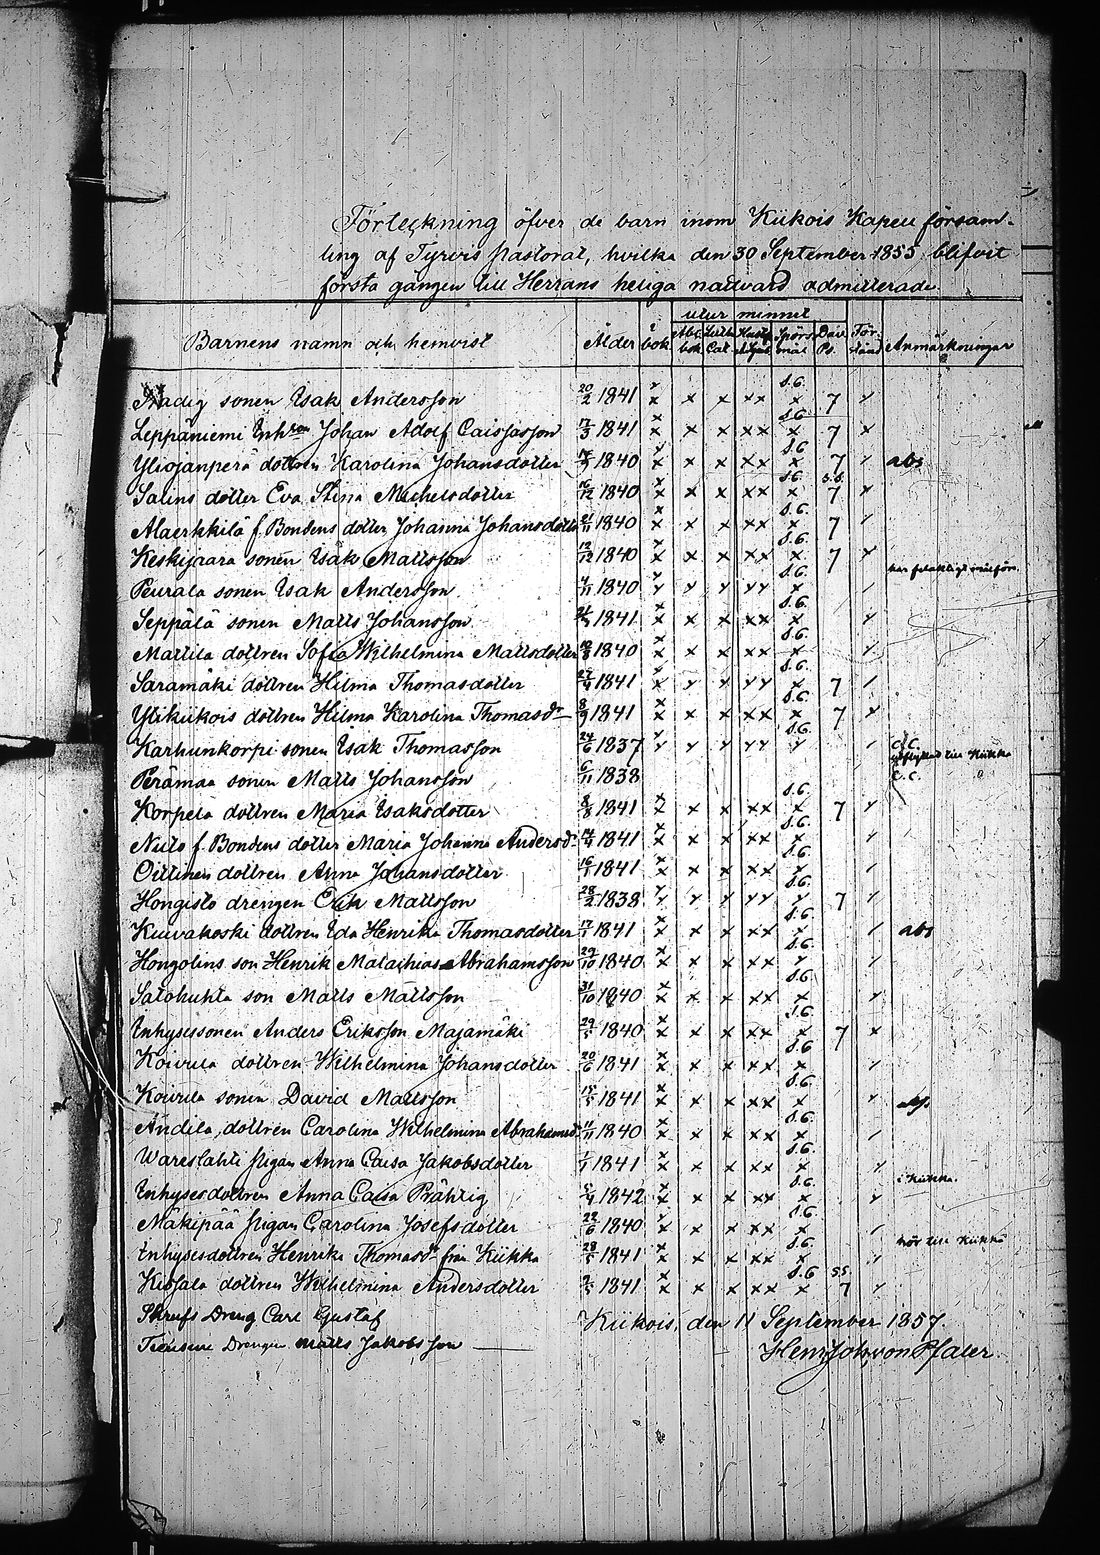 Förteckning öfver de barn inom Kiikois Kapell församling
ling af Tyrvis pastorat, hvilka den 30 September 1855 blifvit
första gången till Herrans heliga nattvard admitterade.
Barnens namn och hemvist Ålder i bok utur minnet Abc bok Luth Cat Hust Spörs mål Dav. Ps. För stånd Anmärkningar
sonen Isak Andersson 20/2 1841 x x x x xx S.G. x 7 x
Leppäniemi Johan Adolf 17/3 1841 x x x x xx S.G. x 7 x
Yliojanperä dottren Karolina Johansdotter 1840 x x x x xx S.G. x 7 abs
Salins dotter Eva Stina Michelsdotter 16/12 1840 x x x x xx S.G. x 7 x
Alaerkkilä f. Bondens dotter Johanna Johansdotter 21/11 1840 x x x x xx S.G. x 7 x
Keskijaara sonen Isak Mattsson 12/12 1840 x x x x xx S.G. x 7
Peurala sonen Isak Andersson 4/11 1840 S.G.
Seppälä sonen Matts Johansson 1841 x x x x xx S.G. x
Mattila dottren Sofia Wilhelmina Mattsdotter 1840 x x x x xx S.G. x
Saramäki dottren Hilma Thomasdotter 1841 S.G. 7
Ylikiikois dottren Hilma Karolina Thomasdr 8/9 1841 x x x x xx S.G. x 7
Karhunkorpi sonen Isak Thomasson 24/6 1837 S.G. till Kiikka
Perämaa sonen Matts Johansson 6/11 1838
Korpela dottren Maria Isaksdotter 8/8 1841 x x x x xx S.G. x 7
f. Bondens dotter Maria Johanna Andersdr 1841 x x x x xx S.G. x
Oittinen dottren Anna Johansdotter 16/1 1841 x x x x xx S.G. x
Hongisto drengen Erik Mattsson 28/2 1838 S.G. 7
Kuivakoski dottren Ida Henrika Thomasdotter 17/1 1841 x x x x xx S.G. x abs
Hongolins son Henrik Malachias Abrahamsson 29/10 1840 x x x x xx S.G.
Salokukta son Matts Mattsson 31/10 1840 x x x x xx S.G. x
Inhysessonen Anders Eriksson Majamäki 29/5 1840 x x x x xx S.G. x 7 x
Koivula dottren Wilhelmina Johansdotter 20/6 1841 x x x x xx S.G. x
Koivula sonen David Mattsson 15/5 1841 x x x x xx S.G. x
Andila dottren Carolina Wilhelmina Abrahamsd. 11/11 1840 x x x x xx S.G. x
Wareslahti pigan Anna Caisa Jakobsdotter 1/1 1841 x x x x xx S.G. x
Inhysesdottren Anna Caisa Prähtig 5/4 1842 x x x x xx S.G. x i Kiikka.
Mäkipää pigan Carolina Josefsdotter 22/6 1840 x x x x xx S.G. x
Inhysesdottren Henrika Thomasdr från Kiikka 28/5 1841 x x x x xx S.G. x hör till Kiikka
dottren Wilhelmina Andersdotter 9/5 1841 x x x x xx S.G. x 7
Skrufs Dreng Carl Gustaf
Drengen Matts Jakobsson
Kiikois, den 11 September 1857.
Henr. Joh. von Pfaler.